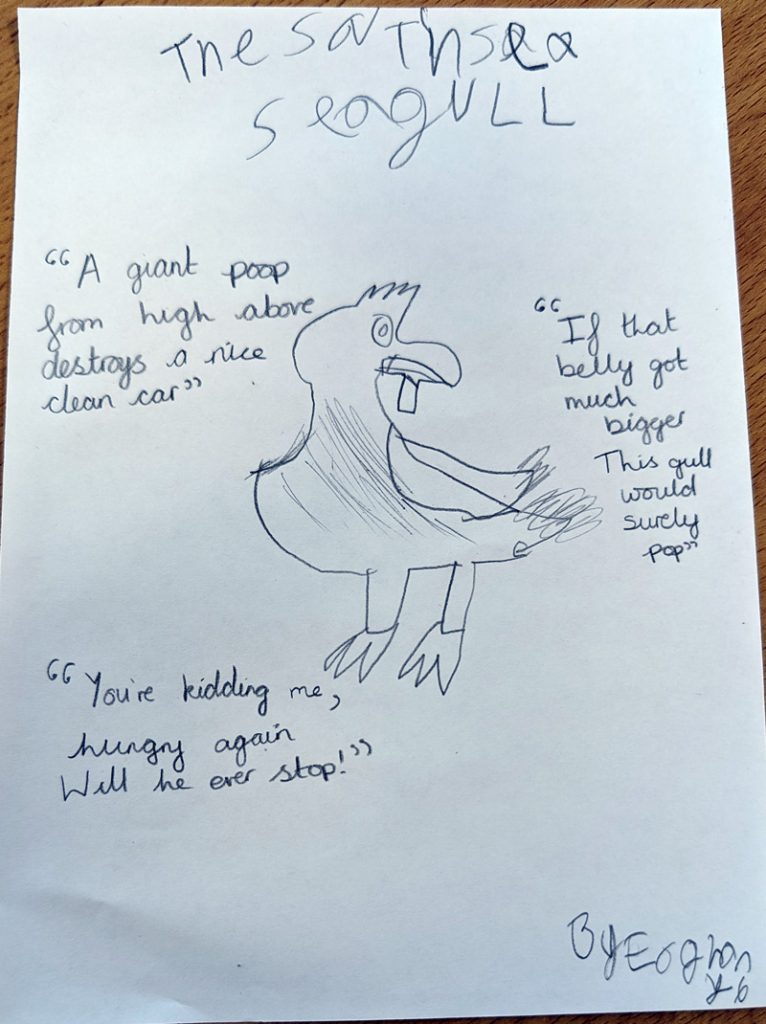 The Sathsea
SeagULL
“A giant poop
from high above
destroys a nice
clean car”
“If that
belly got
much
bigger
This gull
would
surely
pop”
“You're kidding me,
hungry again
Will he ever stop!”
By Eoghan
y6